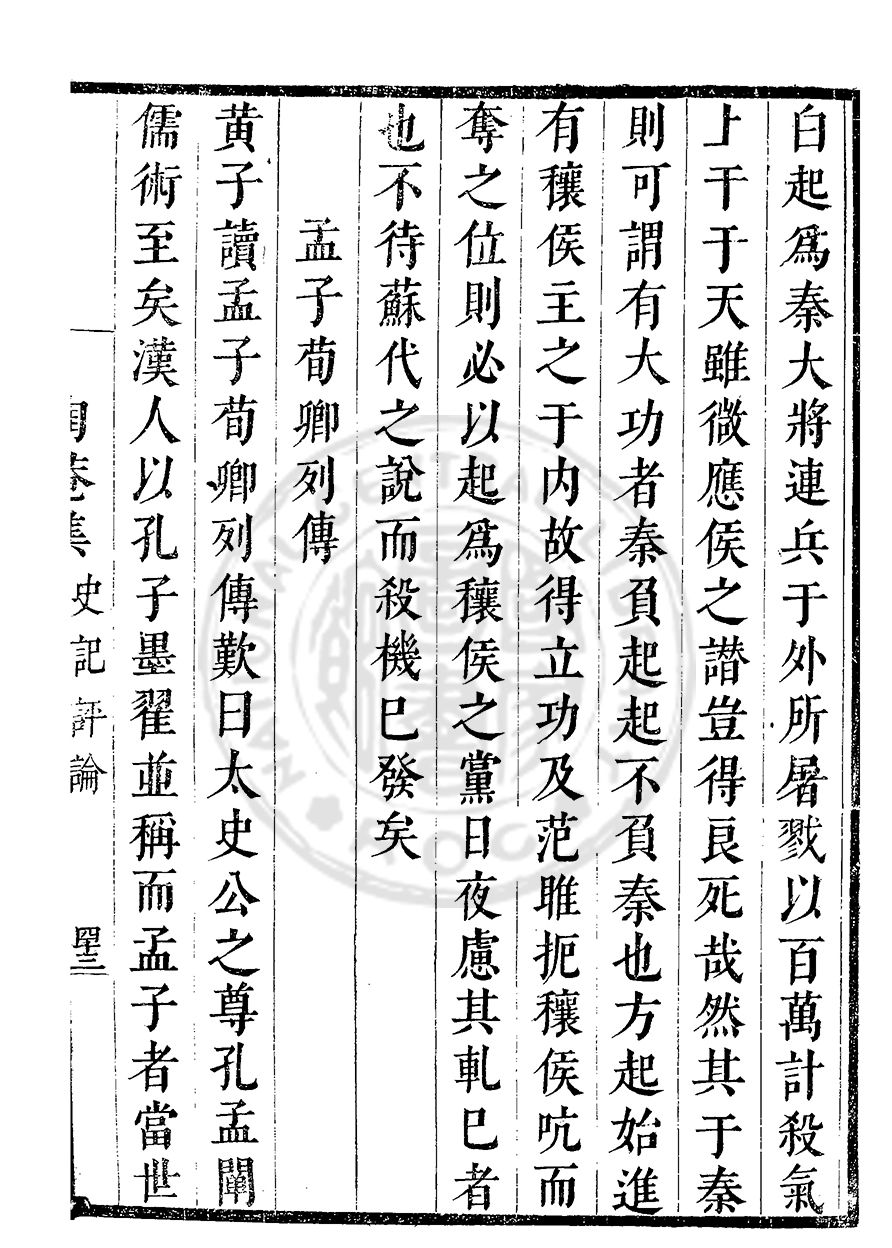 白起爲秦大將連兵于外所屠戮以百萬計殺氣
上干于天雖微應侯之譛豈得良死哉然其于秦
則可謂有大功者秦負起起不負秦也方起始進
有穰侯主之于内故得立功及范雎扼穰侯吭而
奪之位則必以起爲穰侯之黨日夜慮其軋巳者
也不待蘇代之說而殺機巳發矣
孟子荀卿列傳
黃子讀孟子荀卿列傳歎曰太史公之尊孔孟闡
儒術至矣漢人以孔子墨翟並稱而孟子者當世
陶菴集 史記評論 四十三